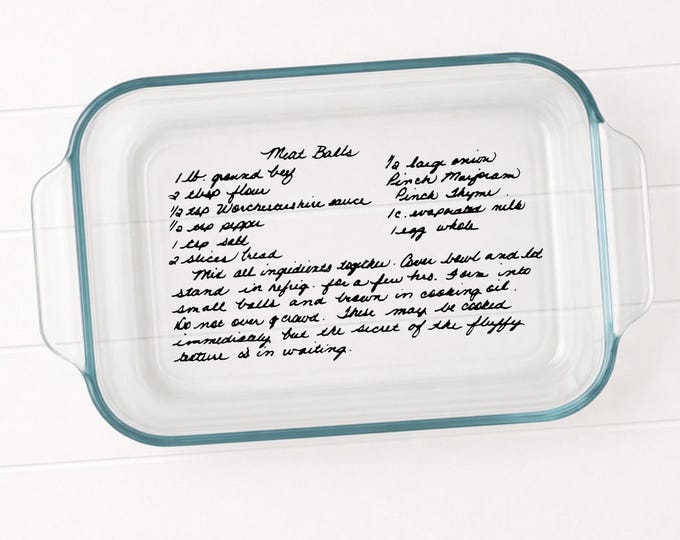 Meat Balls
1 lb. ground beef
2 tbsp flour
1/2 tsp Worchestershire sauce
1/2 tsp pepper
1 tsp salt
2 slices bread
1/2 large onion
Pinch Marjoram
Pinch Thyme.
1 c. evaporated milk
1 egg whole
Mix all ingredients together. Cover bowl and let
stand in refrig. for a few hrs. Form into
small balls and brown in cooking oil.
Do not over crowd. These may be cooked
immediately but the secret of the fluffy
texture is in waiting.